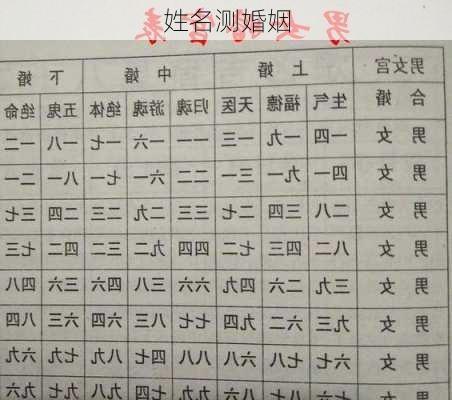 姓名测婚姻
男女宫 上婚 中婚 下婚
合婚 生气 福德 天医 归魂 游魂 绝体 五鬼 绝命
男女 一四 一九 一三 一一 一六 一七 一八 一二
男女 四一 九一 三一 二二 六一 七一 八一 二一
男女 二八 三四 二七 三三 二九 二三 二四 三七
男女 八二 四三 七二 四四 九二 三二 四二 七三
男女 三九 二六 四九 六六 三八 四六 三六 四八
男女 九三 六二 九四 七七 八三 六四 六三 八四
男女 六七 七八 六八 八八 四七 八九 七九 六九
男女 七六 八七 八六 九九 七四 九八 九七 九六